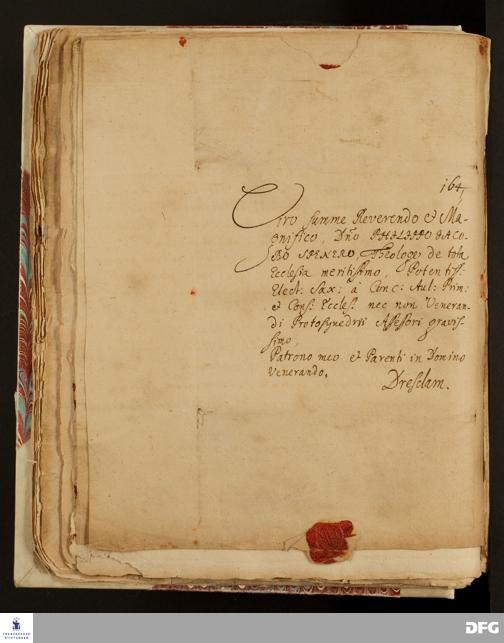 164
Viro summe Reverendo et Ma-
gnifico, Dño PHILIPPO JACO-
BO SPENERO, Theologo de tota
Ecclesia meritissimo, Potentiss:
Elect: Sax: à Conc: Aul: Prim:
et Cons: Eccles: nec non Veneran-
di Protosynedrii Assessori gravis-
simo,
Patrono meo et Parenti in Domino
venerando.
Dresdam.
FRANCKESCHE
STIFTUNGEN
DFG